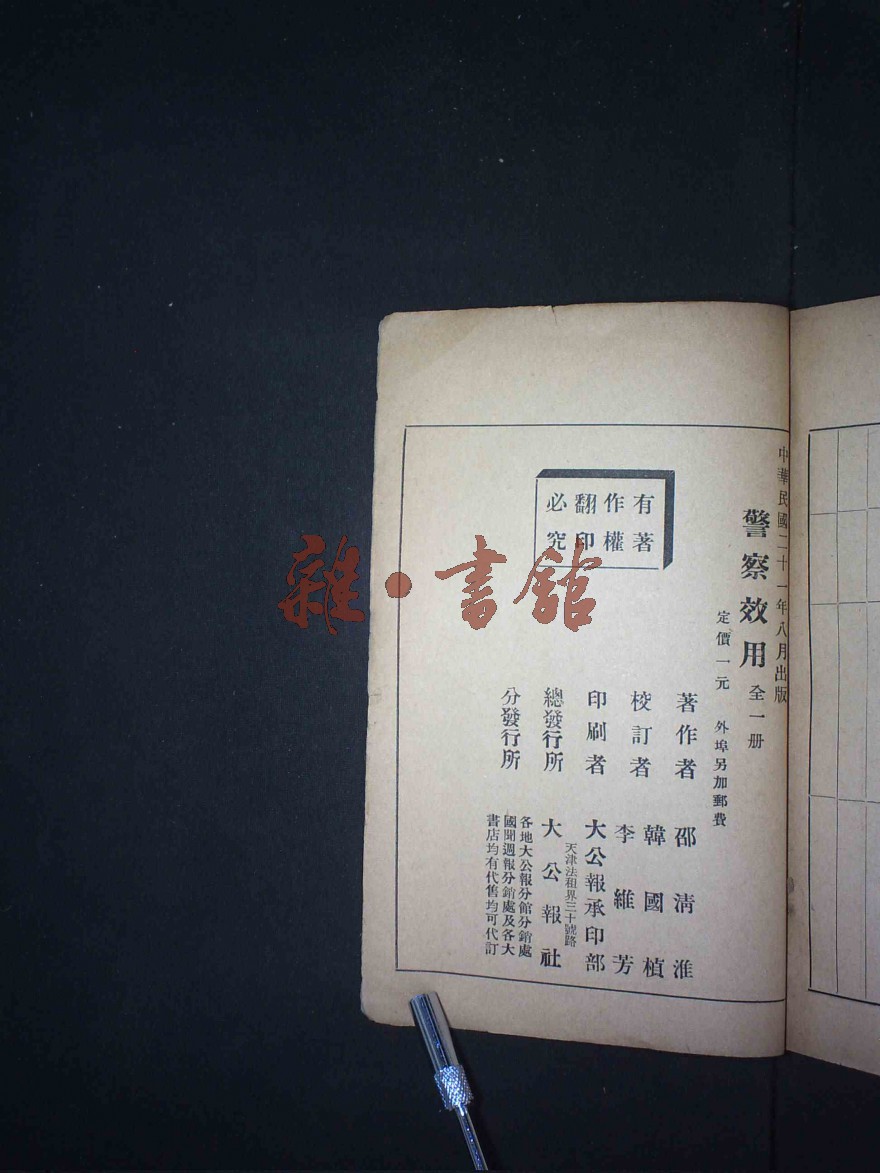 中華民國二十一年八月出版
警察效用 全一册
定價一元 外埠另加郵費
有著
作權
翻印
必究
著作者 邵清淮
校訂者 韓國楨
李維芳
印刷者 大公報承印部
天津法租界三十號路
總發行所 大公報社
分發行所 各地大公報分館分銷處
國聞週報分銷處及各大
書店均有代售均可代訂
雜·書館